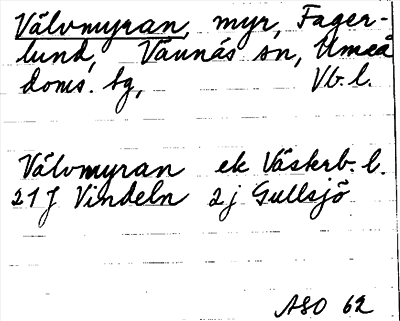 Välvmyran, myr, Fager-
lund, Vännäs sn, Umeå
doms. sg, Vb. l.
Välvmyran ek Västerb. l.
21 J Vindeln 2 j Gullsjö
ASO 62